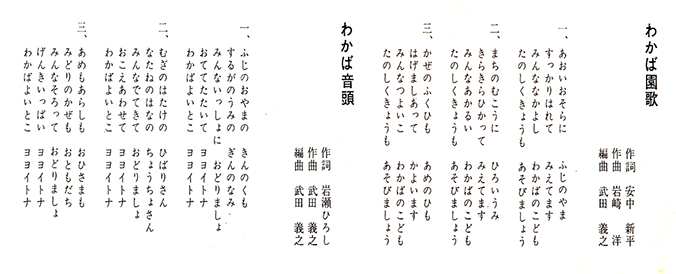 わかば園歌
作詞 安中 新平
作曲 岩崎 洋
編曲 武田 義之
一、あおいおそらに ふじのやま
すっかりはれて みえてます
みんななかよし わかばのこども
たのしくきょうも あそびましょう
二、まちのむこうに ひろいうみ
きらきらひかって みえてます
みんなあかるい わかばのこども
たのしくきょうも あそびましょう
三、かぜのふくひも あめのひも
はげましあって かよいます
みんなつよいこ わかばのこども
たのしくきょうも あそびましょう
わかば音頭
作詞 岩瀬ひろし
作曲 武田 義之
編曲 武田 義之
一、ふじのおやまの きんのくも
するがのうみの ぎんのなみ
みんないっしょに おどりましょ
おててたたいて ヨヨイトナ
わかばよいとこ ヨヨイトナ
二、むぎのはたけの ひばりさん
なたねのはなの ちょうちょさん
みんなでてきて おどりましょ
おこえあわせて ヨヨイトナ
わかばよいとこ ヨヨイトナ
三、あめもあらしも おひさまも
みどりのかぜも おともだち
みんなそろって おどりましょ
げんきいっぱい ヨヨイトナ
わかばよいとこ ヨヨイトナ